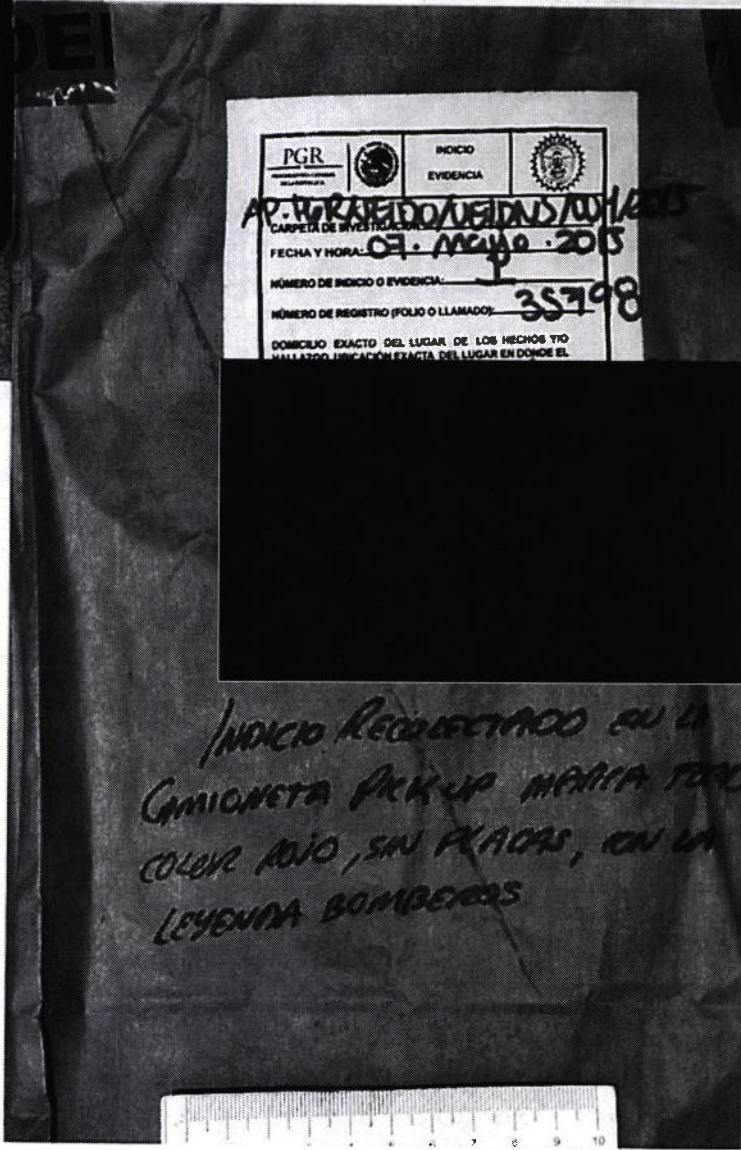 DE
PGR
INDICIO
EVIDENCIA
CARPETA DE INVESTIGACIÓN
FECHA Y HORA: 07. MAYO .2015
NÚMERO DE INDICIO O EVIDENCIA:
NÚMERO DE REGISTRO (FOLIO O LLAMADO): 35798
DOMICILIO EXACTO DEL LUGAR DE LOS HECHOS Y/O
HALLAZGO, UBICACIÓN EXACTA DEL LUGAR EN DONDE EL
INDICIO RECOLECTADO EN LA
CAMIONETA PICK UP MARCA
COLOR ROJO, SIN PLACAS, CON LA
LEYENDA BOMBEROS
7 8 9 10